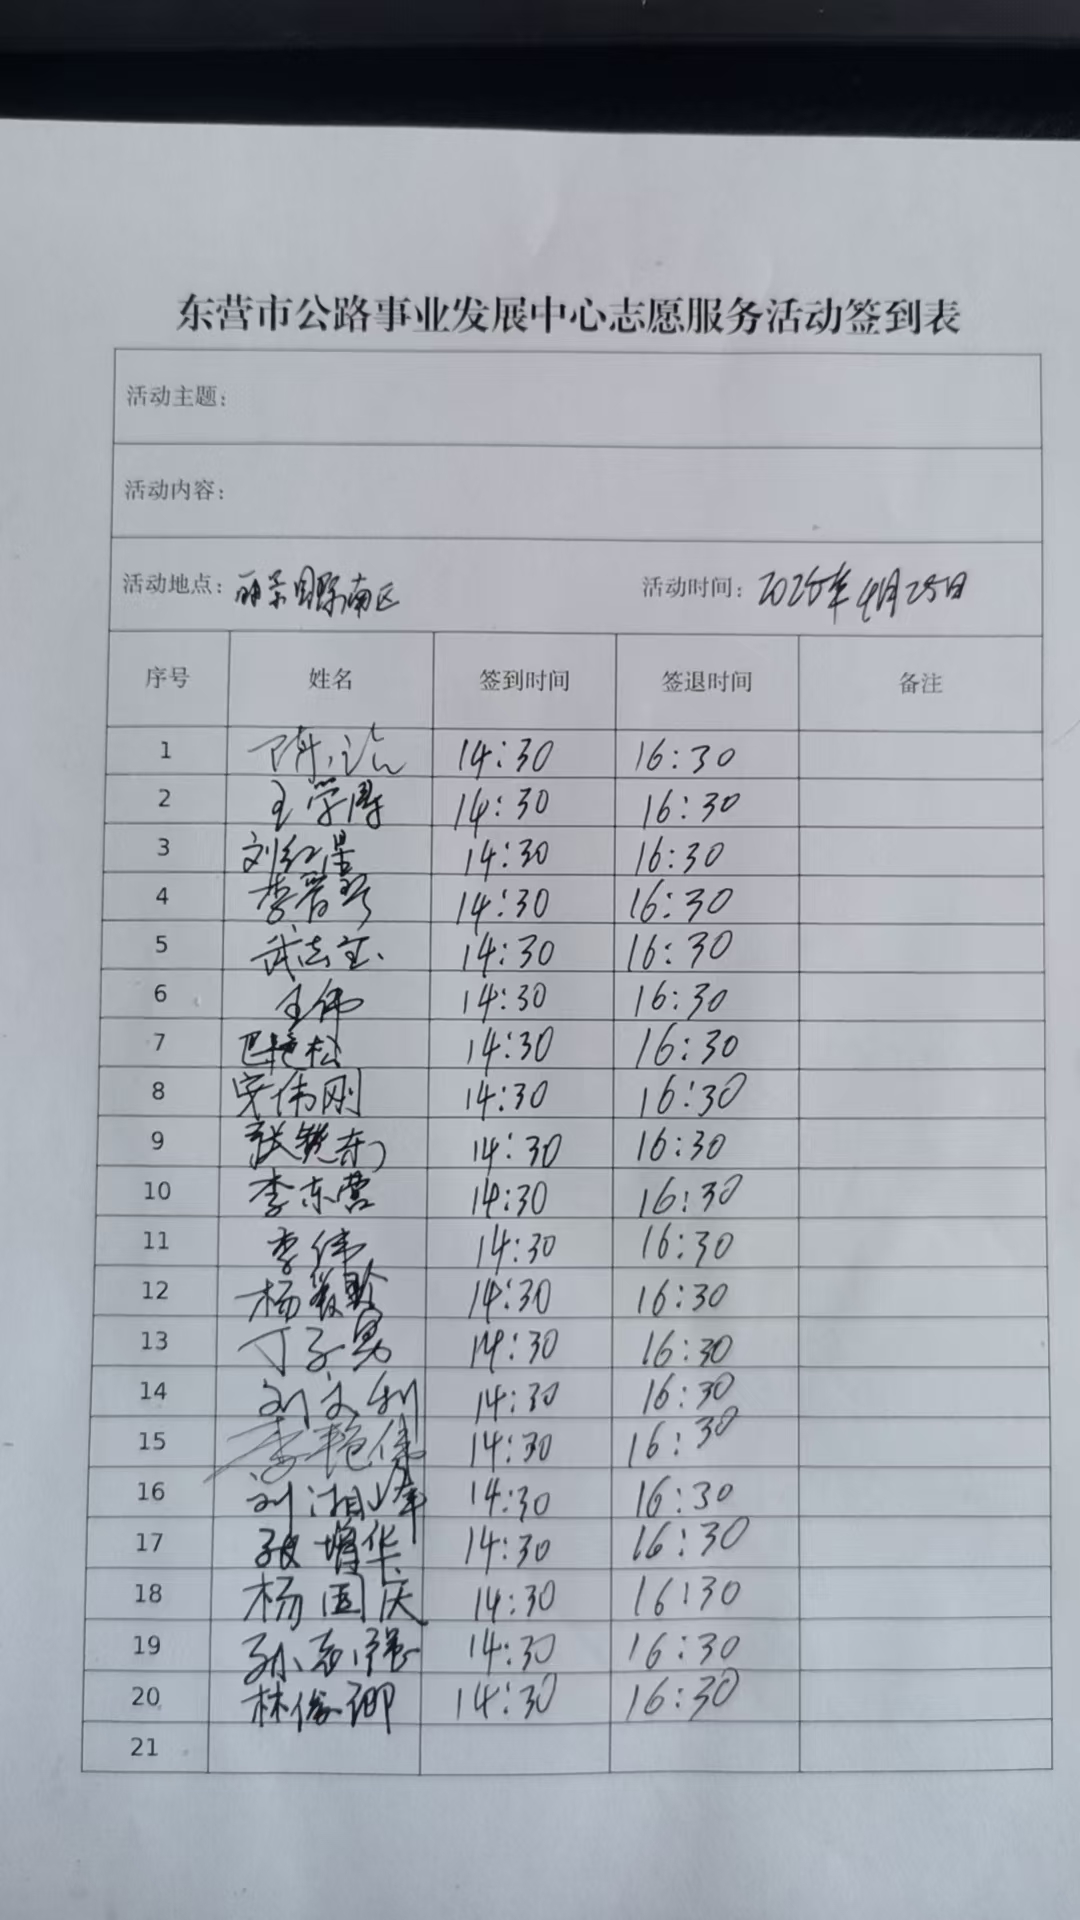 东营市公路事业发展中心志愿服务活动签到表
活动主题：
活动内容：
活动地点：丽景国际南区 活动时间：2025年4月25日
序号 姓名 签到时间 签退时间 备注
1 14:30 16:30
2 王学博 14:30 16:30
3 刘红星 14:30 16:30
4 李 14:30 16:30
5 武志宝 14:30 16:30
6 王伟 14:30 16:30
7 巴艳松 14:30 16:30
8 宋伟刚 14:30 16:30
9 张 东 14:30 16:30
10 李东营 14:30 16:30
11 李伟 14:30 16:30
12 杨 14:30 16:30
13 丁子男 14:30 16:30
14 刘文利 14:30 16:30
15 李艳伟 14:30 16:30
16 刘湘峰 14:30 16:30
17 张增华 14:30 16:30
18 杨国庆 14:30 16:30
19 孙志强 14:30 16:30
20 林俊卿 14:30 16:30
21